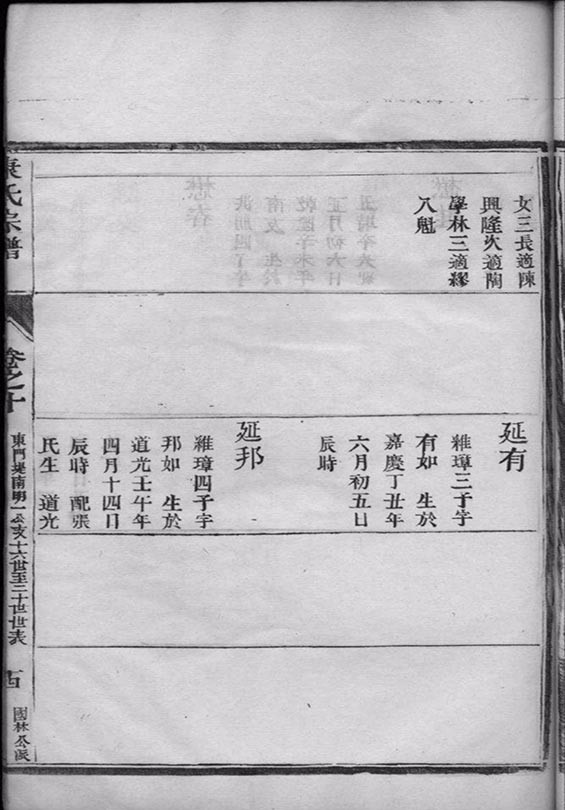 女三長適陳
興隆次適陶
學林三適繆
入魁
延有
維璋三子字
有如 生於
嘉慶丁丑年
六月初五日
辰時
延邦
維璋四子字
邦如 生於
道光壬午年
四月十四日
辰時 配張
氏生 道光
康氏宗譜
卷之十
東門堤南明一公支十六世至三十世世表
國林公派